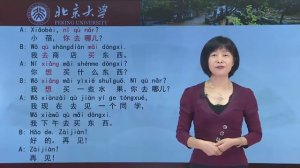 北京大学
PEKING UNIVERSITY
A: Xiǎobèi, nǐ qù nǎr?
小蓓，你去哪儿？
B: Wǒ qù shāngdiàn mǎi dōngxi.
我去商店买东西。
A: Nǐ xiǎng mǎi shénme dōngxi?
你想买什么东西？
B: Wǒ xiǎng mǎi yìxiē shuǐguǒ. Nǐ qù nǎr?
我想买一些水果。你去哪儿？
A: Wǒ xiànzài qù jiàn yí ge tóngxué,
我现在去见一个同学，
Wǒ xiàwǔ qù mǎi dōngxi.
我下午去买东西。
B: Hǎo de. Zàijiàn!
好的。再见！
A: Zàijiàn!
再见！